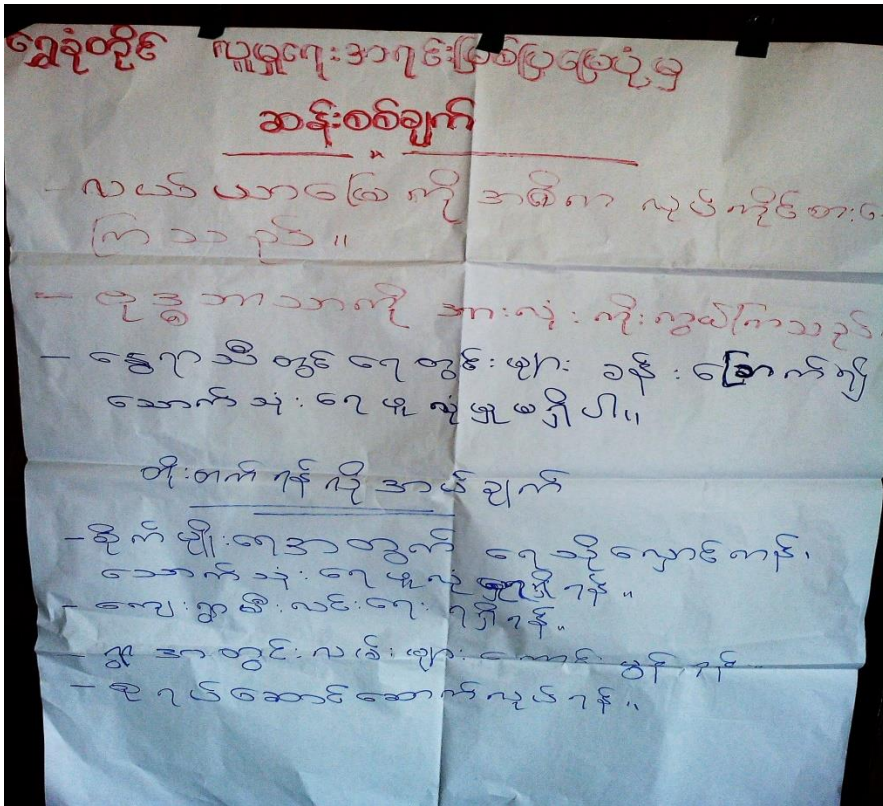 ရွှေခုံတိုင် လူမှုရေးအရင်းမြစ်ပြမြေပုံမှ
ဆန်းစစ်ချက်
- လယ်ယာမြေကို အဓိက လုပ်ကိုင်စား
ကြသည်။
- ဗုဒ္ဓဘာသာကို အားလုံးကိုးကွယ်ကြသည်
- နွေရာသီတွင် ရေတွင်းများ ခန်းခြောက်၍
သောက်သုံးရေ ဖူလုံမှုမရှိပါ။
တိုးတက်ရန်လိုအပ်ချက်
- စိုက်ပျိုးရေးအတွက် ရေသိုလှောင်ကန်၊
သောက်သုံးရေဖူလုံမှုရရှိရန်။
- ကျေးရွာမီးလင်းရေး ရရှိရန်။
- ရွာအတွင်းလမ်းများ ကောင်းမွန်ရန်
- စုရပ်ဆောင်ဆောက်လုပ်ရန်။